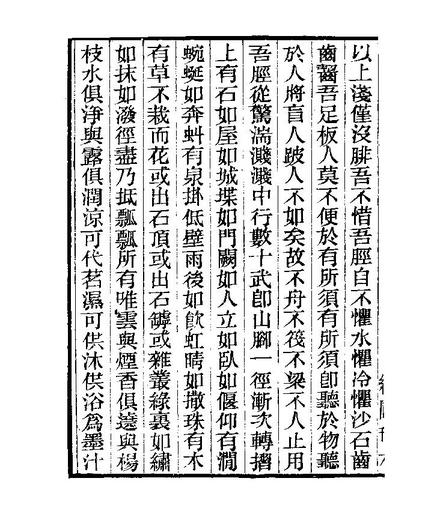 以上淺僅沒腓吾不惜吾脛自不懼水懼冷懼沙石齒
齒齧吾足板人莫不便於有所須有所須卽聽於物聽
於人將盲人跛人不如矣故不舟不筏不梁不人止用
吾脛從驚湍濺濺中行數十武卽山腳一徑漸次轉摺
上有石如屋如城堞如門闕如人立如臥如偃仰有澗
蜿蜒如奔虯有泉掛低壁雨後如飮虹晴如撒珠有木
有草不栽而花或出石頂或出石罅或雜叢綠裏如繡
如抹如潑徑盡乃抵瓢瓢所有唯雲與煙香俱遶與楊
枝水俱淨與露俱潤涼可代茗濕可供沐供浴爲墨汁